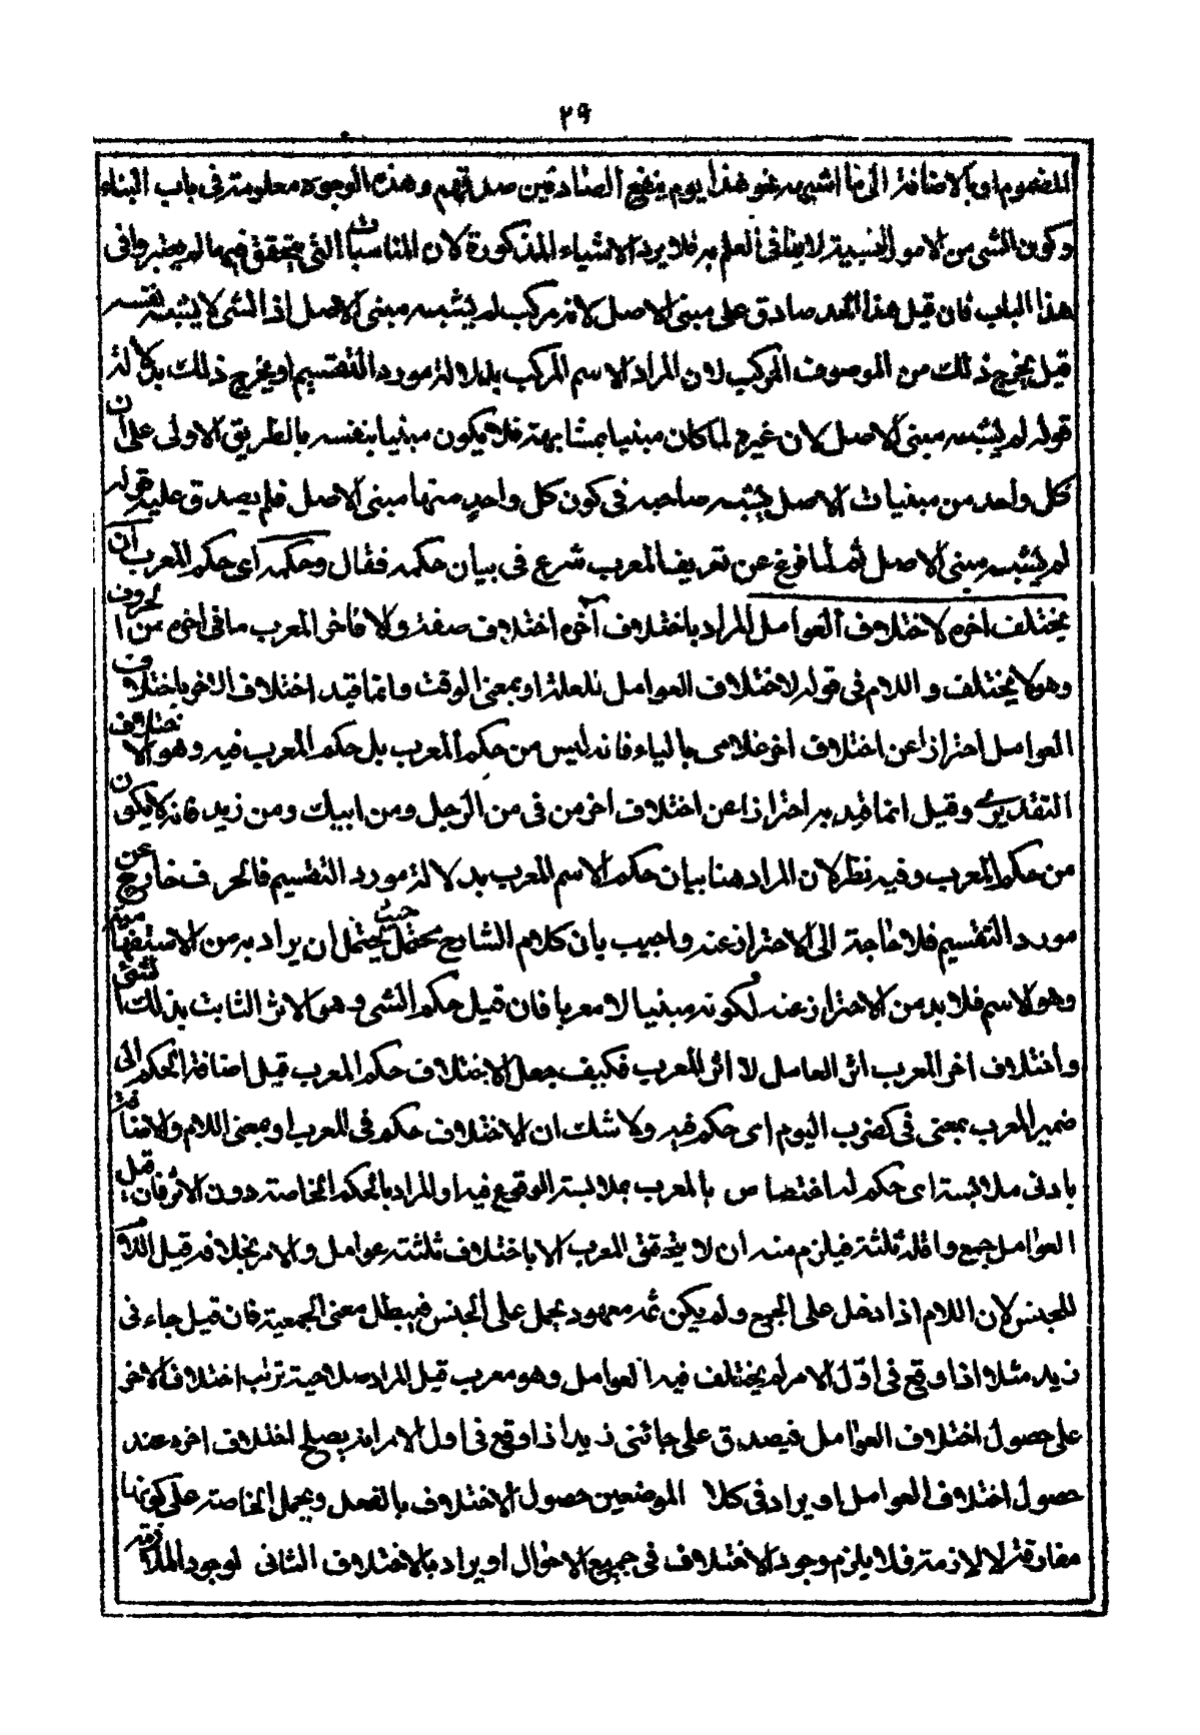 ٢٩
المضموم او بالاضافة الى ما اشبهه نحو هذا يوم ينفع الصادقين صدقهم وهذه الوجوه معلومة فى باب البناء
وكون الشى من الامور النسبية لا ينافى العلم به فلا يرد الاشياء المذكورة لان المناسبات التى يتحقق فيها لم يعتبروا فى
هذا الباب فان قيل هذا الحد صادق على مبنى الاصل لانه مركب لم يشبه مبنى الاصل اذ الشى لا يشبه نفسه
قيل يخرج ذلك من الموصوف المركب لان المراد الاسم المركب بدلالة مورد التقسيم او يخرج ذلك بدلالة
قوله لم يشبه مبنى الاصل لان غيره لما كان مبنيا بمشابهته فلا يكون مبنيا بنفسه بالطريق الاولى على ان
كل واحد من مبنيات الاصل يشبه صاحبه فى كون كل واحد منها مبنى الاصل فلم يصدق عليه قوله
لم يشبه مبنى الاصل ثم لما فرغ عن تعريف المعرب شرع فى بيان حكمه فقال وحكمه اى حكم المعرب ان
يختلف اخره لاختلاف العوامل المراد باختلاف آخره اختلاف صفة والا فاخر المعرب ما فى اخره من الحروف
وهو لا يختلف و اللام فى قوله لاختلاف العوامل للعلة او بمعنى الوقت وانما قيد اختلاف الاخر باختلاف
العوامل احترازا عن اختلاف اخر غلامى بالياء فانه ليس من حكم المعرب بل حكم المعرب فيه وهو الاختلاف
التقديرى وقيل انما قيد به احترازا عن اختلاف اخر من فى من الرجل ومن ابيك ومن زيد فانه لا يكون
من حكم المعرب وفيه نظر لان المراد هنا بيان حكم الاسم المعرب بدلالة مورد التقسيم فالحرف خارج عن
مورد التقسيم فلا حاجة الى الاحتراز عنه واجيب بان كلام الشارح محتمل حيث يحتمل ان يراد به من الاستفهامية
وهو الاسم فلا بد من الاحتراز عنه لكونه مبنيا لا معربا فان قيل حكم الشى وهو الاثر الثابت بذلك الشئ
واختلاف اخر المعرب اثر العامل لا اثر المعرب فكيف جعل الاختلاف حكم المعرب قيل اضافة الحكم الى
ضمير المعرب بمعنى فى كضرب اليوم اى حكم فيه ولا شك ان الاختلاف حكم فى المعرب او بمعنى اللام والاضافة
بادنى ملابسة اى حكم له اختصاص بالمعرب بملابسة الوقوع فيه او المراد بالحكم الخاصة دون الاثر فان قيل
العوامل جمع واقله ثلثة فيلزم منه ان لا يتحقق المعرب الا باختلاف ثلثة عوامل والامر بخلافه قيل اللام
للجنس لان اللام اذا دخل على الجمع ولم يكن ثمه معهود يحمل على الجنس فيبطل معنى الجمعية فان قيل جاءنى
زيد مثلا اذا وقع فى اول الامر لم يختلف فيه العوامل وهو معرب قيل المراد صلاحية ترتب اختلاف الاخر
على حصول اختلاف العوامل فيصدق على جائنى زيد اذا وقع فى اول الامر انه يصلح لختلاف اخره عند
حصول اختلاف العوامل او يراد فى كلا الموضعين حصول الاختلاف بالفعل ويحمل الخاصة على كونها
مفارقة لا لازمة فلا يلزم وجود الاختلاف فى جميع الاحوال او يراد بالاختلاف الثانى لوجود الملاقة